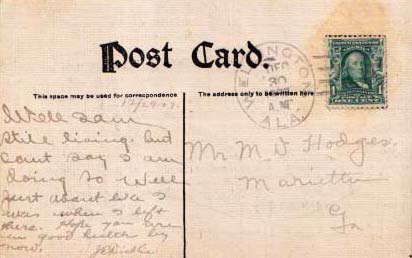 Post Card.
This space may be used for correspondence
The address only to be written here
WELLINGTON
DEC
30
A.M.
ALA.
ONE CENT
12/29.07.
Well Sam
Still living. but
cant say I am
doing so well
just about like I
was when I left
there. Hope you are
in good health by
now.
Mr M. D. Hodges,
Marietta
Ga